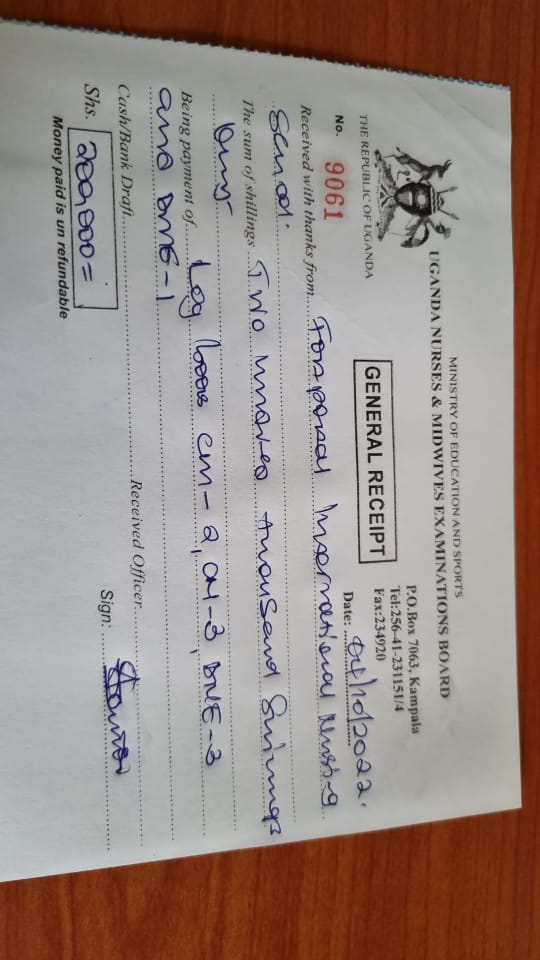 MINISTRY OF EDUCATION AND SPORTS
UGANDA NURSES & MIDWIVES EXAMINATIONS BOARD
P.O.Box 7063, Kampala
Tel:256-41-231151/4
Fax:234920
THE REPUBLIC OF UGANDA
GENERAL RECEIPT
No. 9061
Date: 2022.
Received with thanks from International
School.
The sum of shillings Two Hundred thousand Shillings
Only
Being payment of Log books CM-2, CM-3, DNE-3
and DME-1
Cash/Bank Draft Received Officer
Shs. 200,000= Sign:
Money paid is un refundable